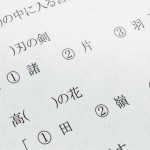 )の中に入る
)刃の剣
① 諸 ② 片 ③ 羽
高( )の花
① 田 ② 嶺